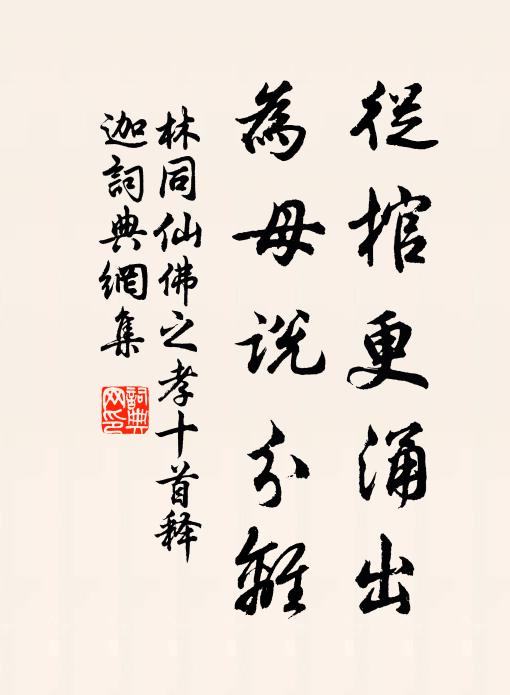 從棺更涌出
為母説分離
林同仙佛之孝十首释
迦詞典網集
詞典
网印